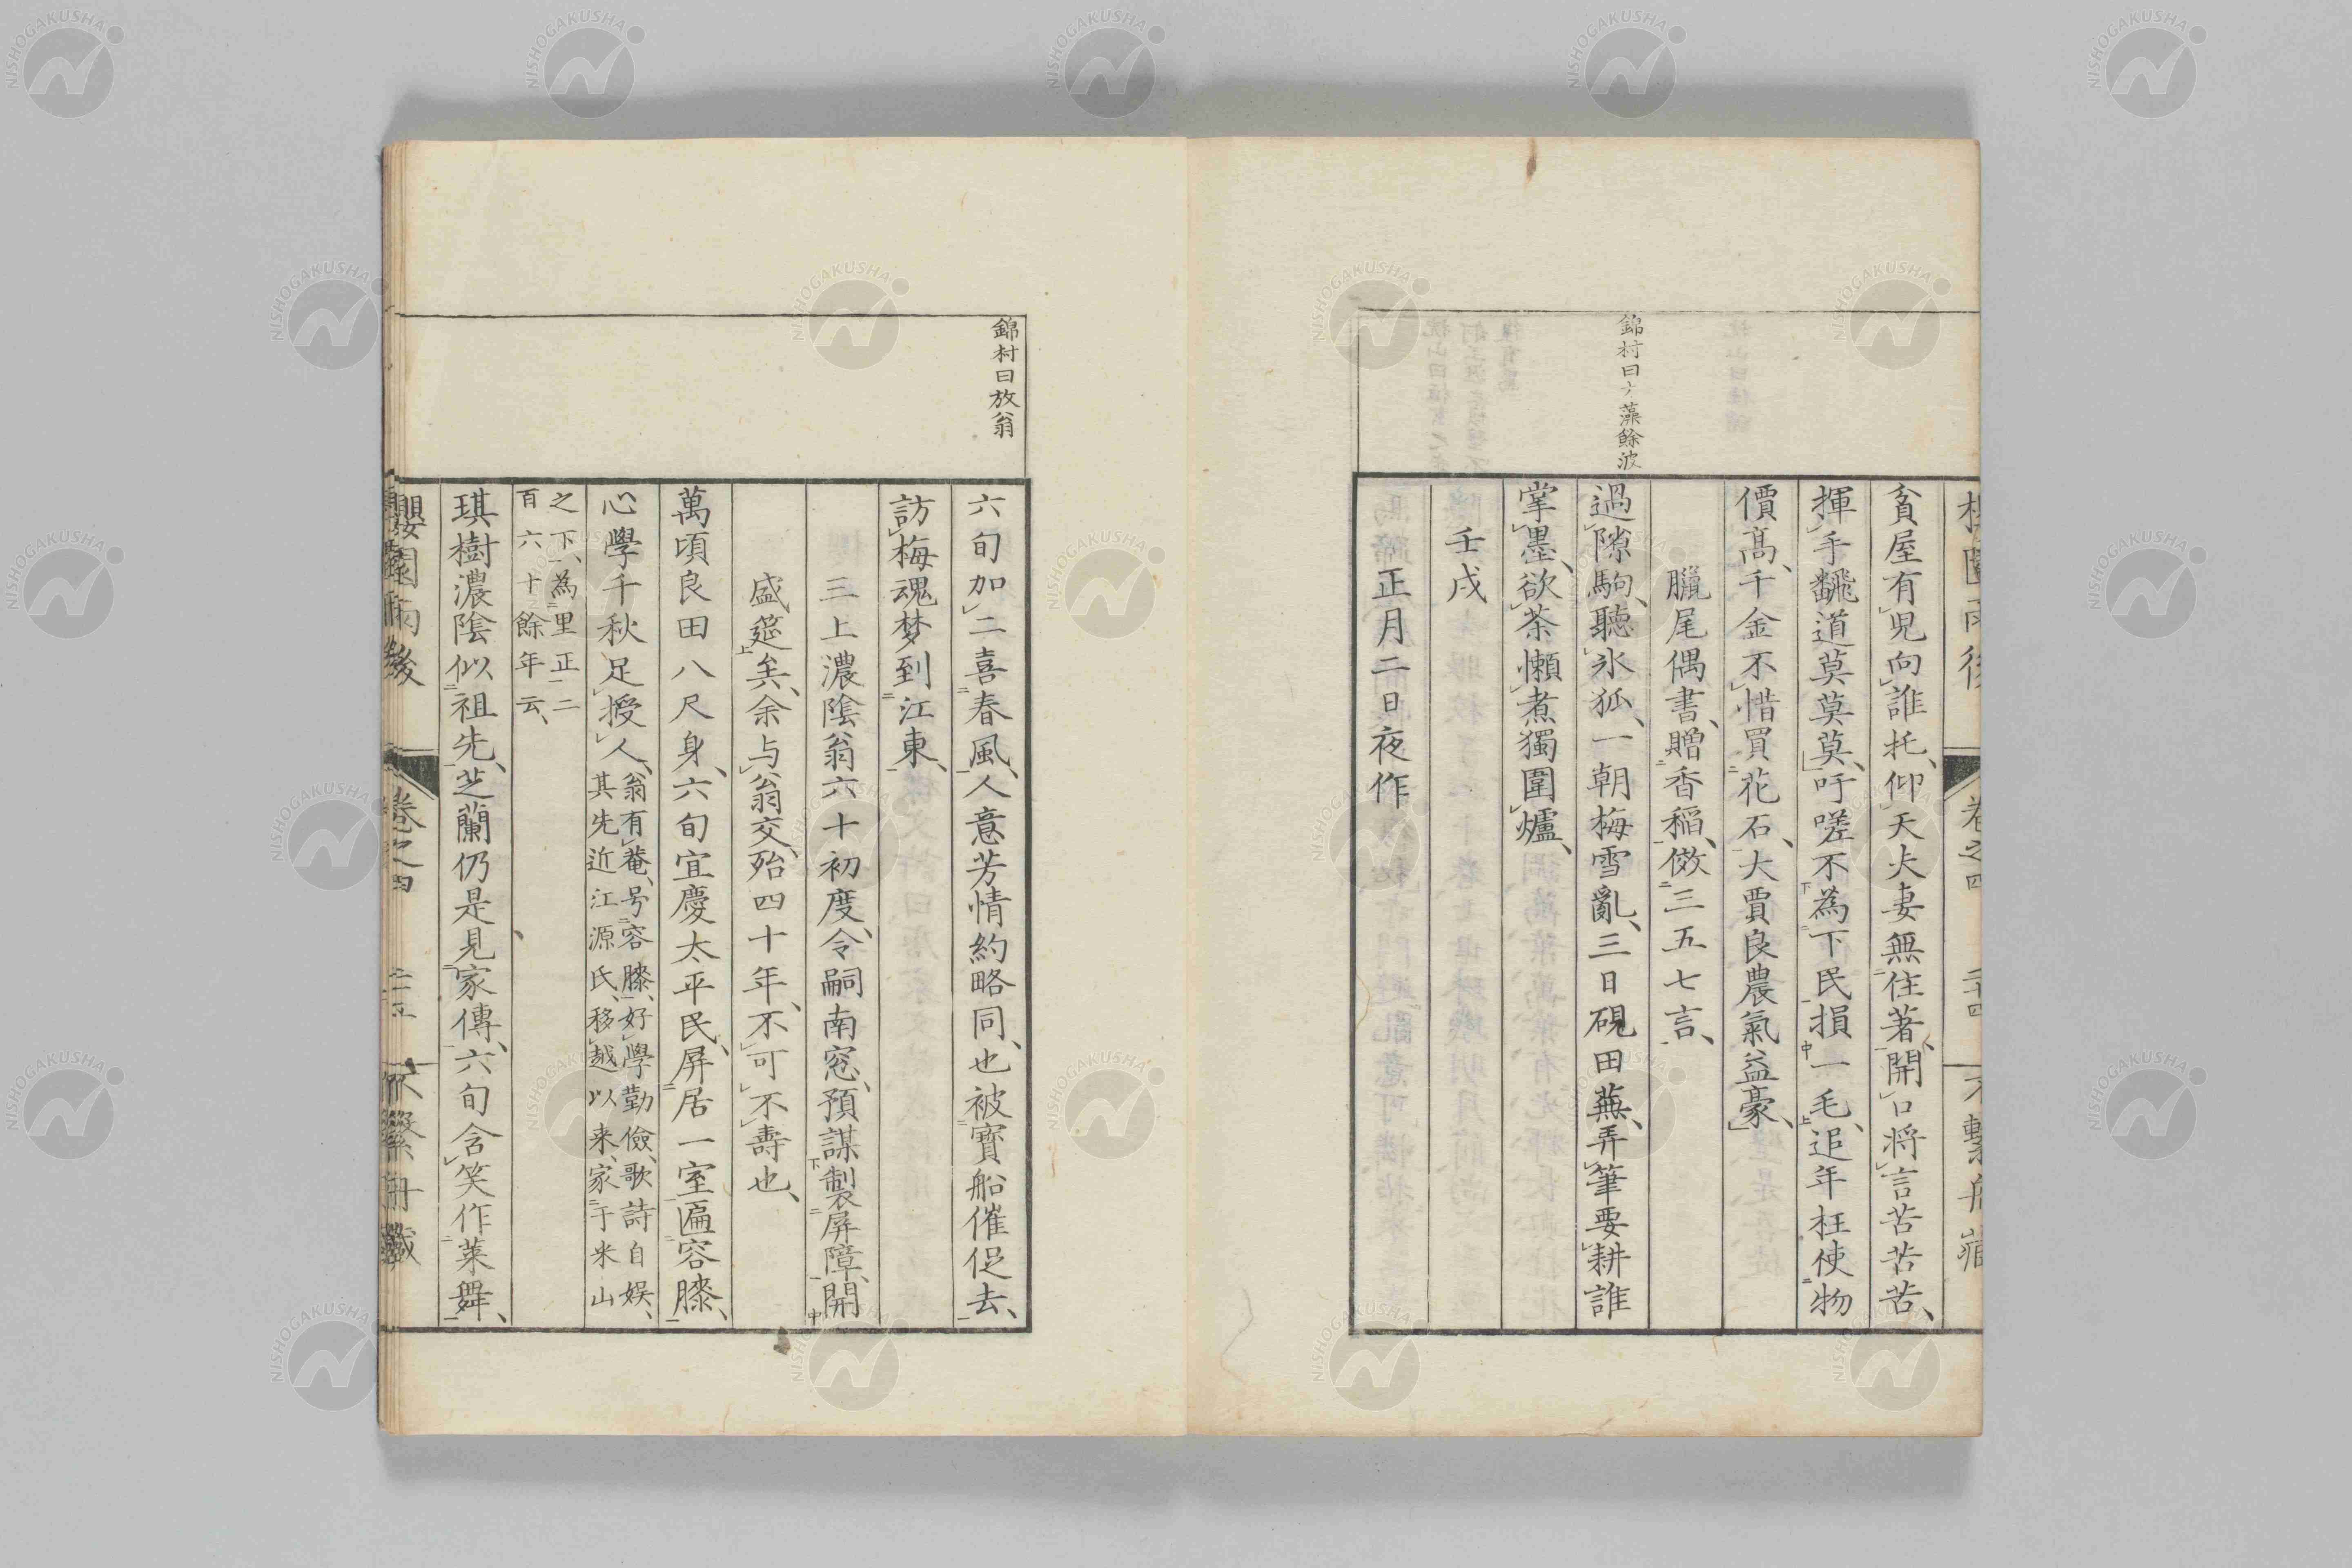 錦村曰才藻餘波
貧屋有児向誰托、仰天夫妻無住著、開口将言苦苦苦、
揮手飜道莫莫莫、吁嗟不為下民損一毛、追年枉使物
價高、千金不惜買花石、大賈良農氣益豪、
臘尾偶書、贈香稲、傚三五七言、
過隙駒、聽氷狐、一朝梅雪亂、三日硯田蕪、弄筆要耕誰
掌墨、欲茶懶煮獨圍爐、
壬戌
正月二日夜作
卷之四
錦村曰放翁
六旬加二喜春風、人意芳情約略同、也被寶船催促去、
訪梅魂梦到江東、
三上濃陰翁六十初度、令嗣南窓、預謀製屏障、開
盛筵矣、余与翁交、殆四十年、不可不壽也、
萬頃良田八尺身、六旬宜慶太平民、屏居一室匾容膝、
心學千秋足授人、翁有菴、号容膝、好學勤儉、歌詩自娱、
其先近江源氏、移越以来、家于米山
之下、為里正二
百六十餘年云、
琪樹濃陰似祖先、芝蘭仍是見家傳、六旬含笑作莱舞、
櫻園雨後
卷之四
不繫舟藏